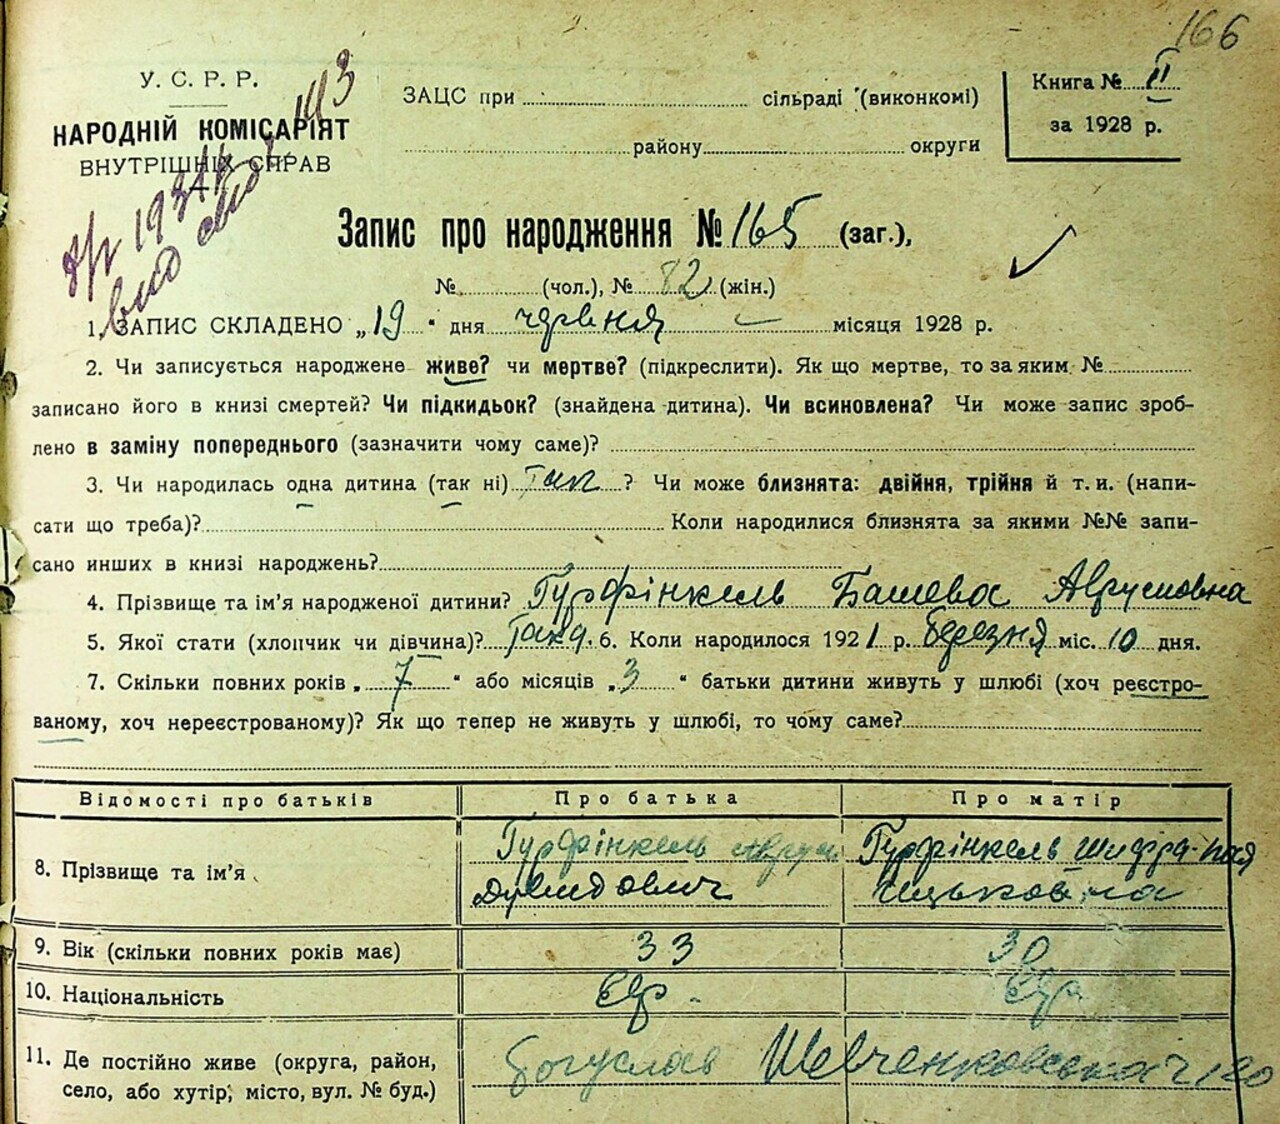 166
У. С. Р. Р.
НАРОДНІЙ КОМІСАРІЯТ
ВНУТРІШНІХ СПРАВ
ЗАЦС при сільраді (виконкомі)
району округи
Книга № II
за 1928 р.
Запис про народження № 165 (заг.),
№ (чол.), № 82 (жін.)
1. ЗАПИС СКЛАДЕНО „19" дня червня місяця 1928 р.
2. Чи записується народжене живе? чи мертве? (підкреслити). Як що мертве, то за яким №
записано його в книзі смертей? Чи підкидьок? (знайдена дитина). Чи всиновлена? Чи може запис зроб-
лено в заміну попереднього (зазначити чому саме)?
3. Чи народилась одна дитина (так ні) Так ? Чи може близнята: двійня, трійня й т. и. (напи-
сати що треба)? Коли народилися близнята за якими №№ запи-
сано инших в книзі народжень?
4. Прізвище та ім'я народженої дитини? Гурфінкель Башева Аврумовна
5. Якої стати (хлопчик чи дівчина)? 6. Коли народилося 1921 р. березня міс. 10 дня.
7. Скільки повних років „7" або місяців „3" батьки дитини живуть у шлюбі (хоч реєстро-
ваному, хоч нереєстрованому)? Як що тепер не живуть у шлюбі, то чому саме?
Відомості про батьків Про батька Про матір
8. Прізвище та ім'я Гурфінкель Аврум Дувидович Гурфінкель
9. Вік (скільки повних років має) 33 30
10. Національність Євр. Євр
11. Де постійно живе (округа, район,
село, або хутір, місто, вул. № буд.) Богуслав Шевченковська